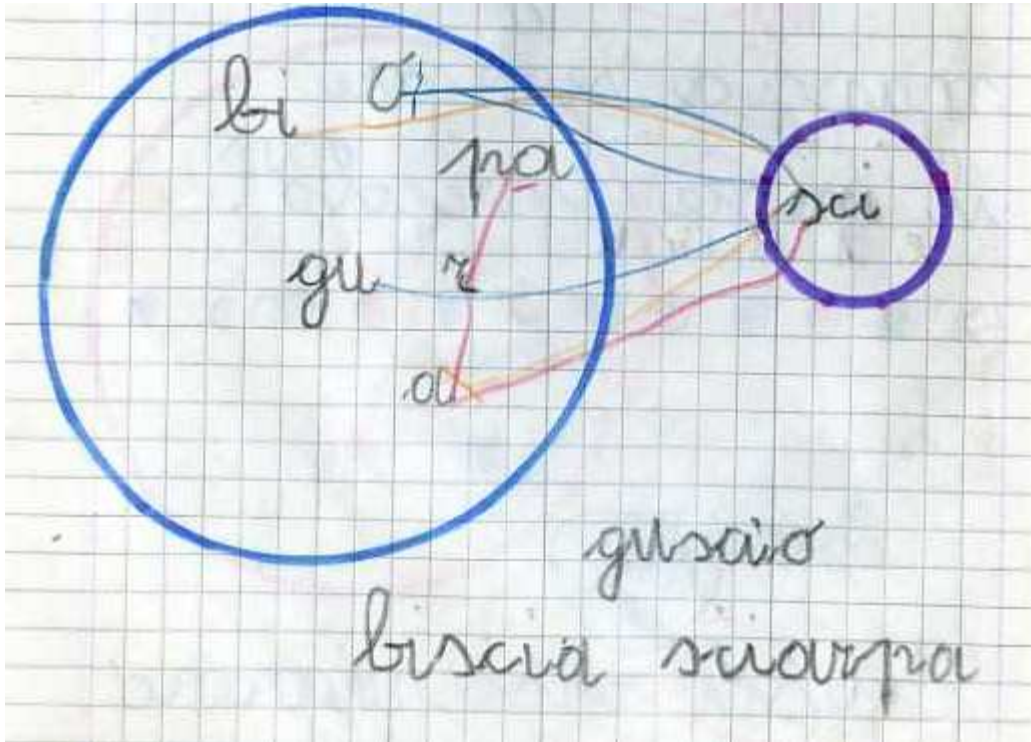 bi o
pa
sci
gu r
a
guscio
biscia sciarpa